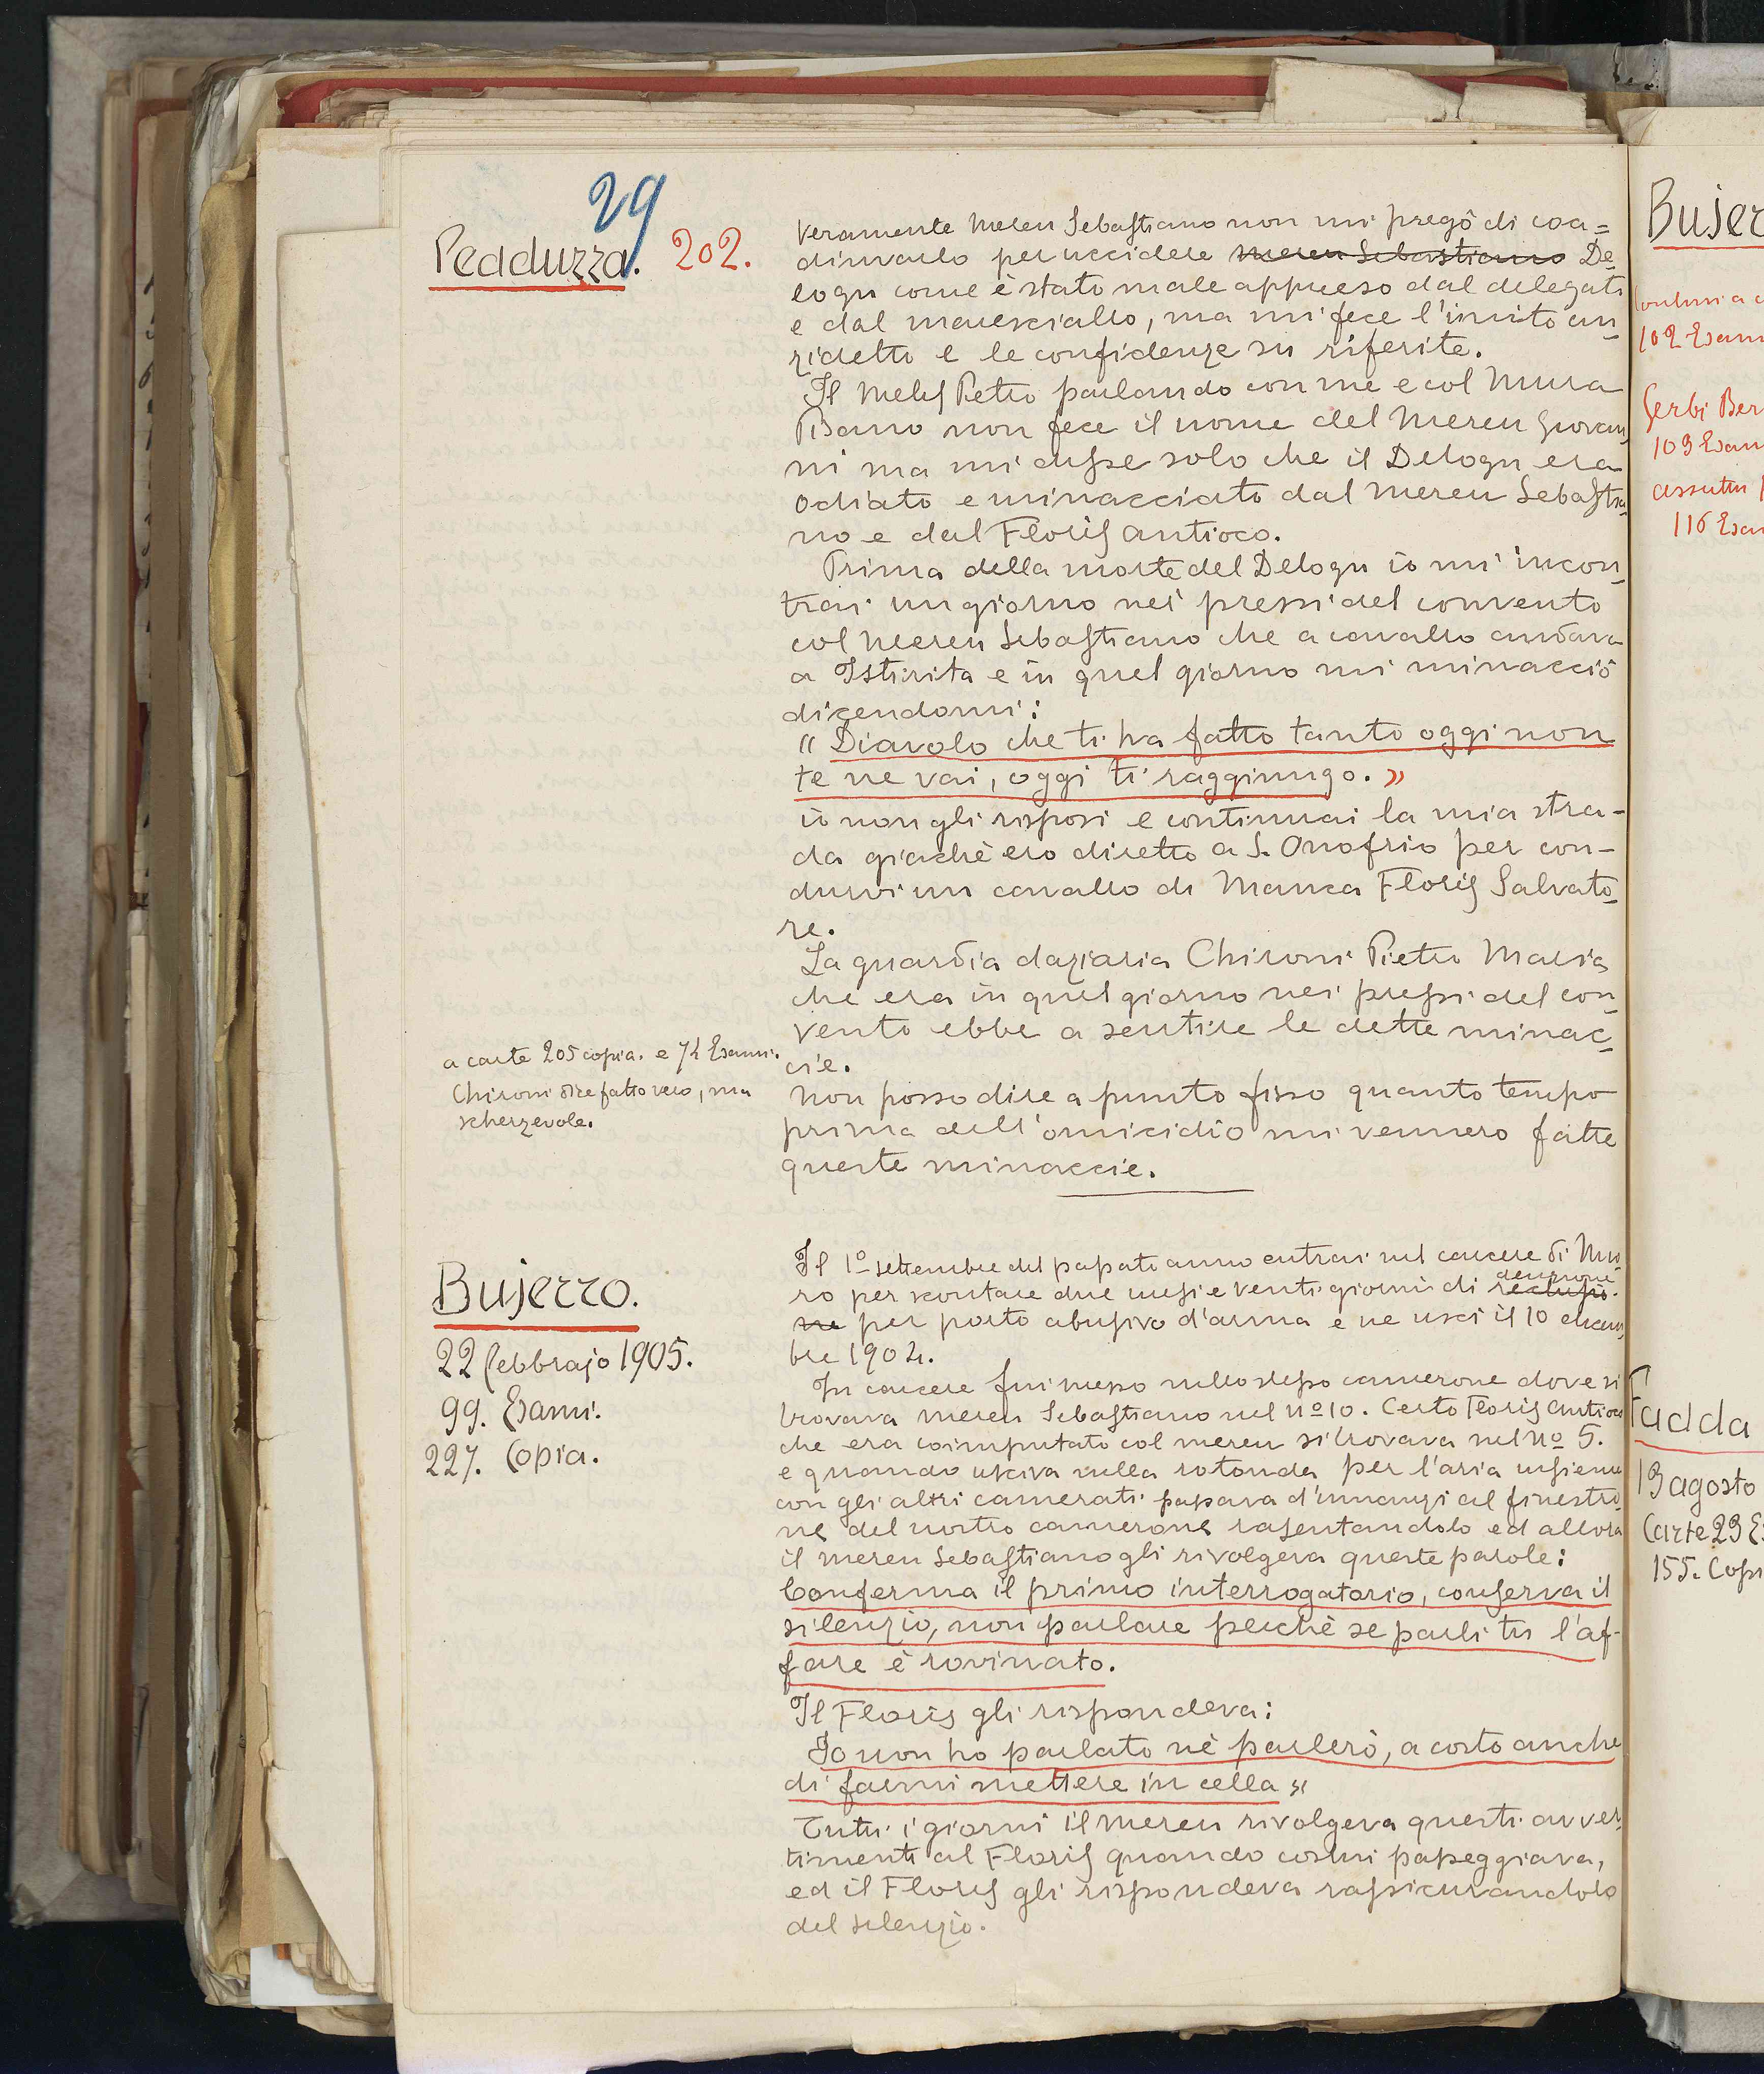 29
Peadduzza. 202.
Veramente Mereu Sebastiano non mi pregò di coa=
diuvarlo per uccidere Mereu Sebastiano De
logu come è stato male appreso dal delegato
e dal maresciallo, ma mi fece l'invito an
zidetto e le confidenze su riferite.
Il Melis Pietro parlando con me e col Mura
Pisano non fece il nome del Mereu Giovan
ni ma mi disse solo che il Delogu era
odiato e minacciato dal Mereu Sebastia
no e dal Floris Antioco.
Prima della morte del Delogu io mi incon
trai un giorno nei pressi del convento
col Mereu Sebastiano che a cavallo andava
a Istirita e in quel giorno mi minacciò
dicendomi:
" Diavolo che ti ha fatto tanto oggi non
te ne vai, oggi ti raggiungo. »
io non gli risposi e continuai la mia stra-
da giacchè ero diretto a S. Onofrio per con-
durvi un cavallo di Manca Floris Salvato
re.
La guardia daziaria Chironi Pietro Maria
che era in quel giorno nei pressi del con
vento ebbe a sentire le dette minac
cie.
a carte 205 copia. e 74 Esami.
Chironi dice fatto vero, ma
scherzevole.
Non posso dire a punto fisso quanto tempo
prima dell'omicidio mi vennero fatte
queste minaccie.
Bujerro.
22 febbrajo 1905.
99. Esami.
227. Copia.
Il 1º settembre del passato anno entrai nel carcere di Nuo
ro per scontare due mesi e venti giorni di reclusio detenzione
ne per porto abusivo d'arma e ne uscì il 10 dicem
bre 1904.
In carcere fui messo nello stesso camerone dove si
trovava Mereu Sebastiano nel nº 10. Certo Floris Antioco
che era coimputato col Mereu si trovava nel Nº 5.
e quando usciva nella rotonda per l'aria insieme
con gli altri camerati passava d'innanzi al finestro
ne del nostro camerone rasentandolo ed allora
il Mereu Sebastiano gli rivolgeva queste parole:
Conferma il primo interrogatorio, conserva il
silenzio, non parlare perchè se parli tu l'af-
fare è rovinato.
Il Floris gli rispondeva:
Io non ho parlato nè parlerò, a costo anche
di farmi mettere in cella »
Tutti i giorni il Mereu rivolgeva questi avver
timenti al Floris quando costui passeggiava,
ed il Floris gli rispondeva rassicurandolo
del silenzio.
Bujer
102 Esam
Serbi Ber
109 Esam
assunta
116 Esam
Fadda
13 agosto
Carte 29 E
155. Copi